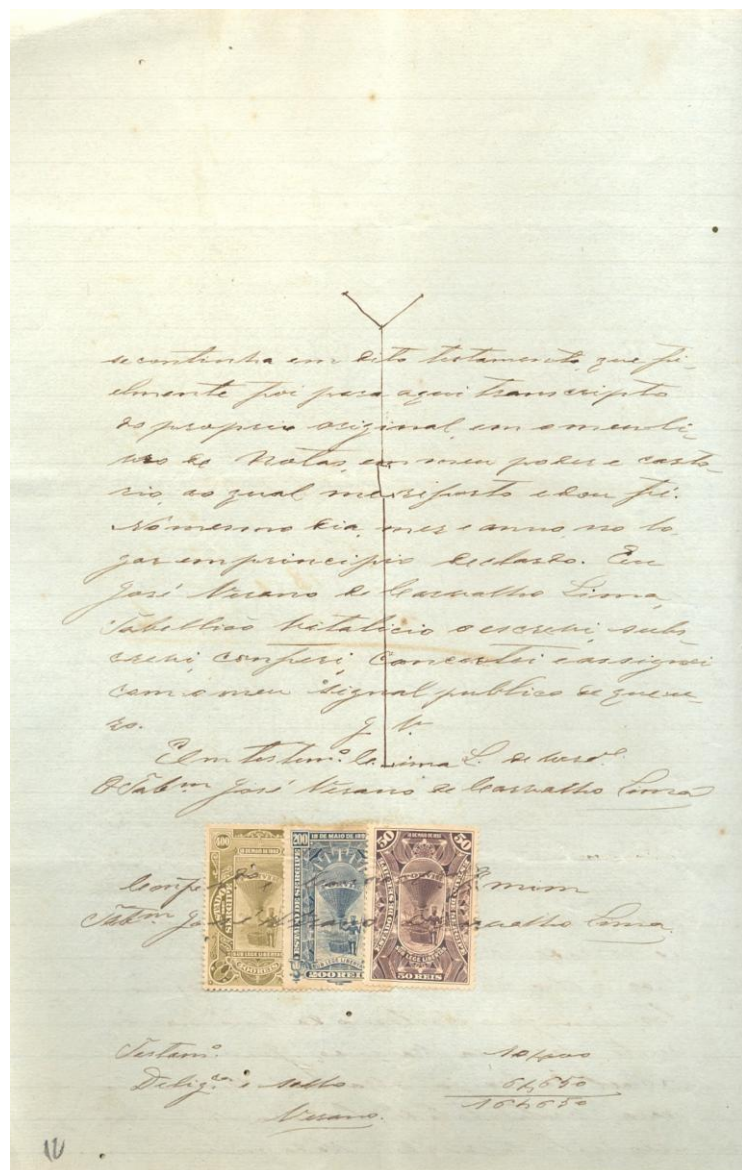 se continha em dito testamento, que fi-
elmente foi para aqui transcripto
do proprio original, em o meu li-
vro de Notas, em meu poder e carto-
rio, ao qual me riporto e dou fé.
No mesmo dia, mez e anno, no lo-
gar em principio declardo. Eu
José Verano de Carvalho Lima,
Tabellião Vitalicio o escrevi, subs-
crevi, conferi, concertei e assignei
com o meu signal publico de que u-
zo. J. V.
Em testemº de verdº
O Tabᵐ José Verano de Carvalho Lima
400
200
18 DE MAIO DE 189
50
18 DE MAIO DE 1892
50
ESTADO DE SERGIPE
SUB LEGE LIBERTAS
200 REIS
50 REIS
por mim
Tabᵐ José Verano de Carvalho Lima
Testamº 10,000
Deligᶜᵃ e sello 6,650
16,650
Verano.
12